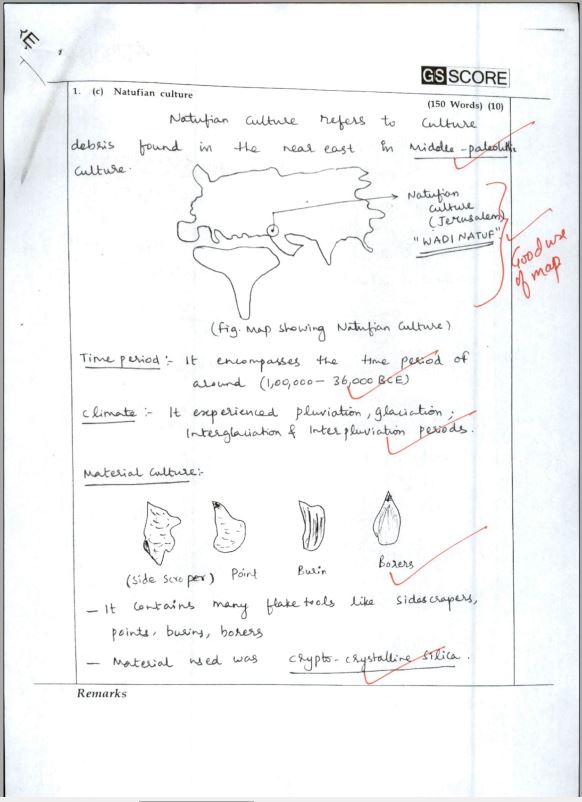 GS SCORE
1. (c) Natufian culture
(150 Words) (10)
Natufian Culture refers to Culture
debris found in the near east in Middle-paleolithic
Culture.
Natufian
culture
(Jerusalem)
"WADI NATUF"
Good use
of map
(fig. Map showing Natufian Culture)
Time period :- It encompasses the time period of
around (1,00,000 - 36,000 BCE)
climate :- It experienced pluviation, glaciation,
Interglaciation & Interpluviation periods.
Material Culture:-
(Side Scroper) Point Burin Borers
- It contains many flake tools like sidescrapers,
points, burins, borers
- Material used was crypto-crystalline silica.
Remarks